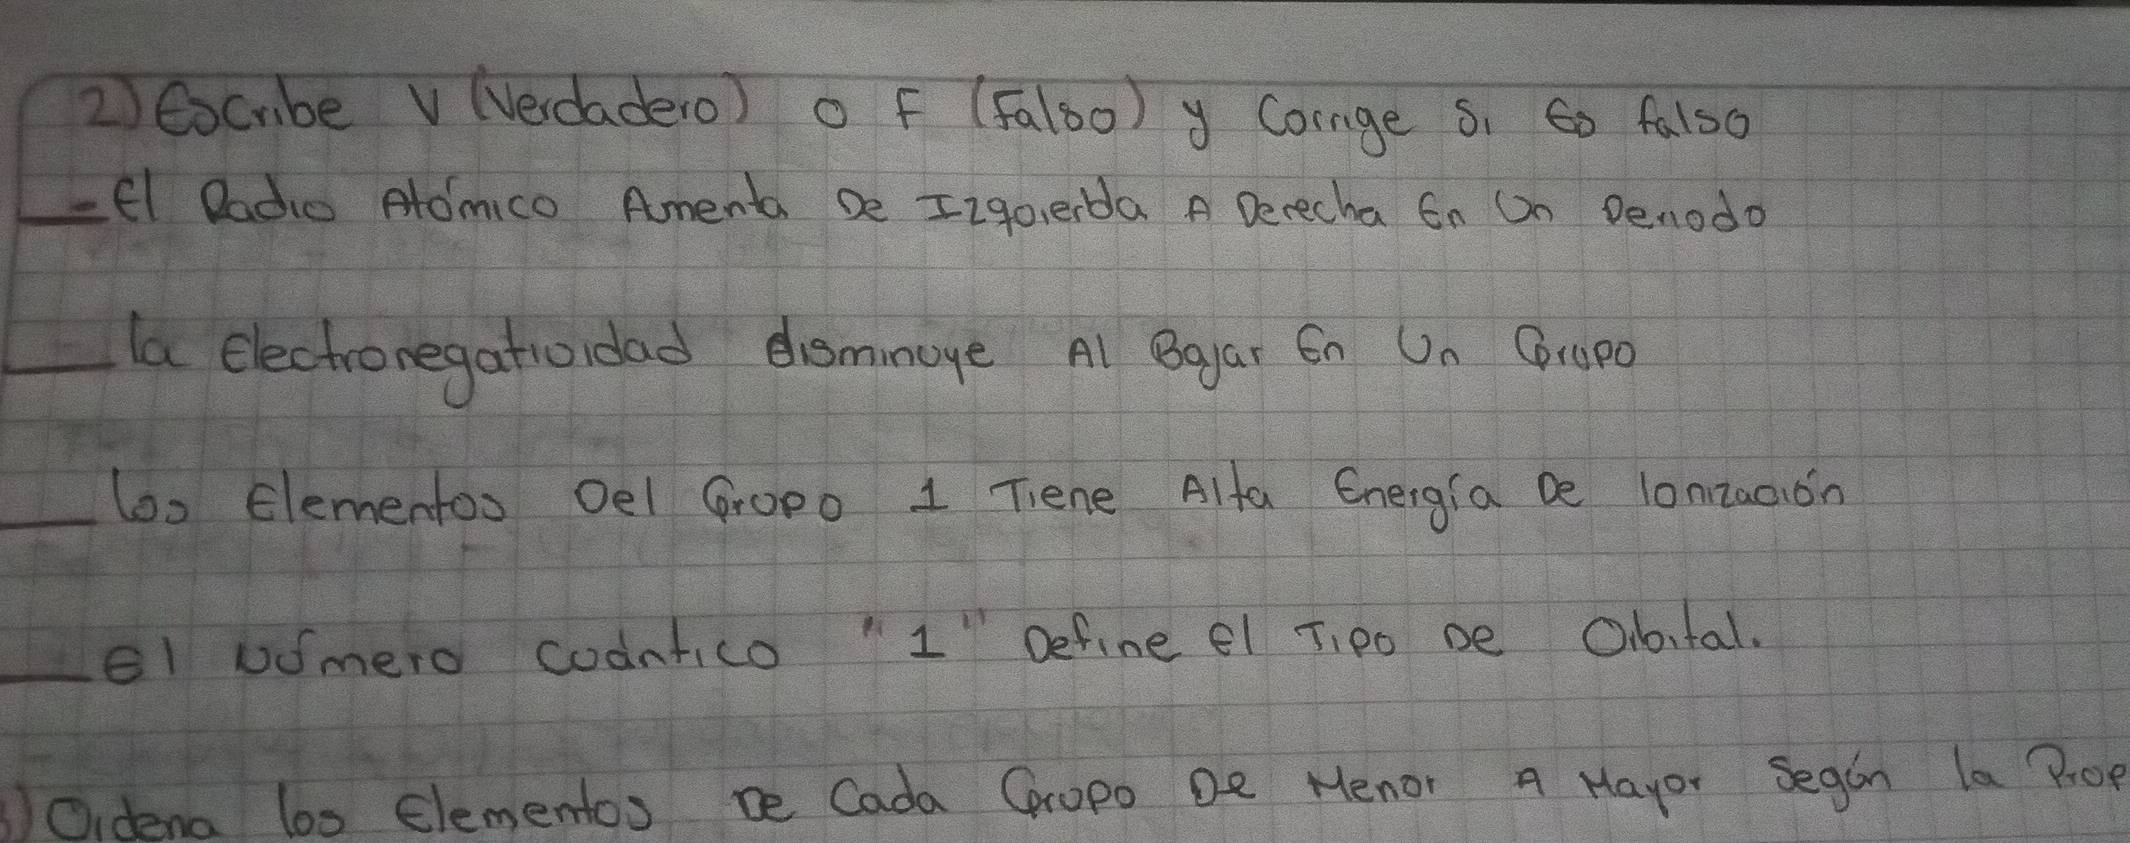 2) Escribe V (Verdadero) o F (Falso) y Corrige Si Es falso
- El Radio Atómico Aumenta De Izquierda A Derecha En Un Periodo
la Electronegatividad disminuye Al Bajar En Un Grupo
los Elementos Del Grupo 1 Tiene Alta Energía De Ionización
El número cuántico "1" Define El Tipo De Orbital.
3) Ordena los Elementos De Cada Grupo De Menor A Mayor Según la Prop